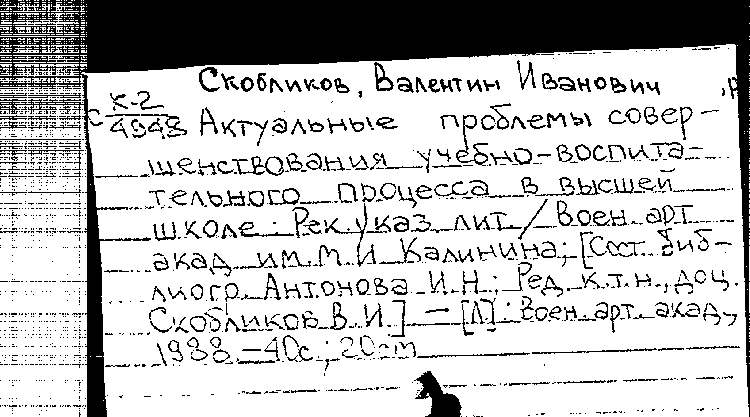 Скобликов, Валентин Иванович ,р
С К-2
4948 Актуальные проблемы совер-
шенствования учебно-воспита-
тельного процесса в высшей
школе: Рек. указ. лит. / Воен. арт.
акад. им. М. И. Калинина; [Сост. биб-
лиогр. Антонова И. Н.; Ред. к.т.н., доц.
Скобликов В. И.] — [Л]: Воен. арт. акад.,
1988 — 40с.; 20см